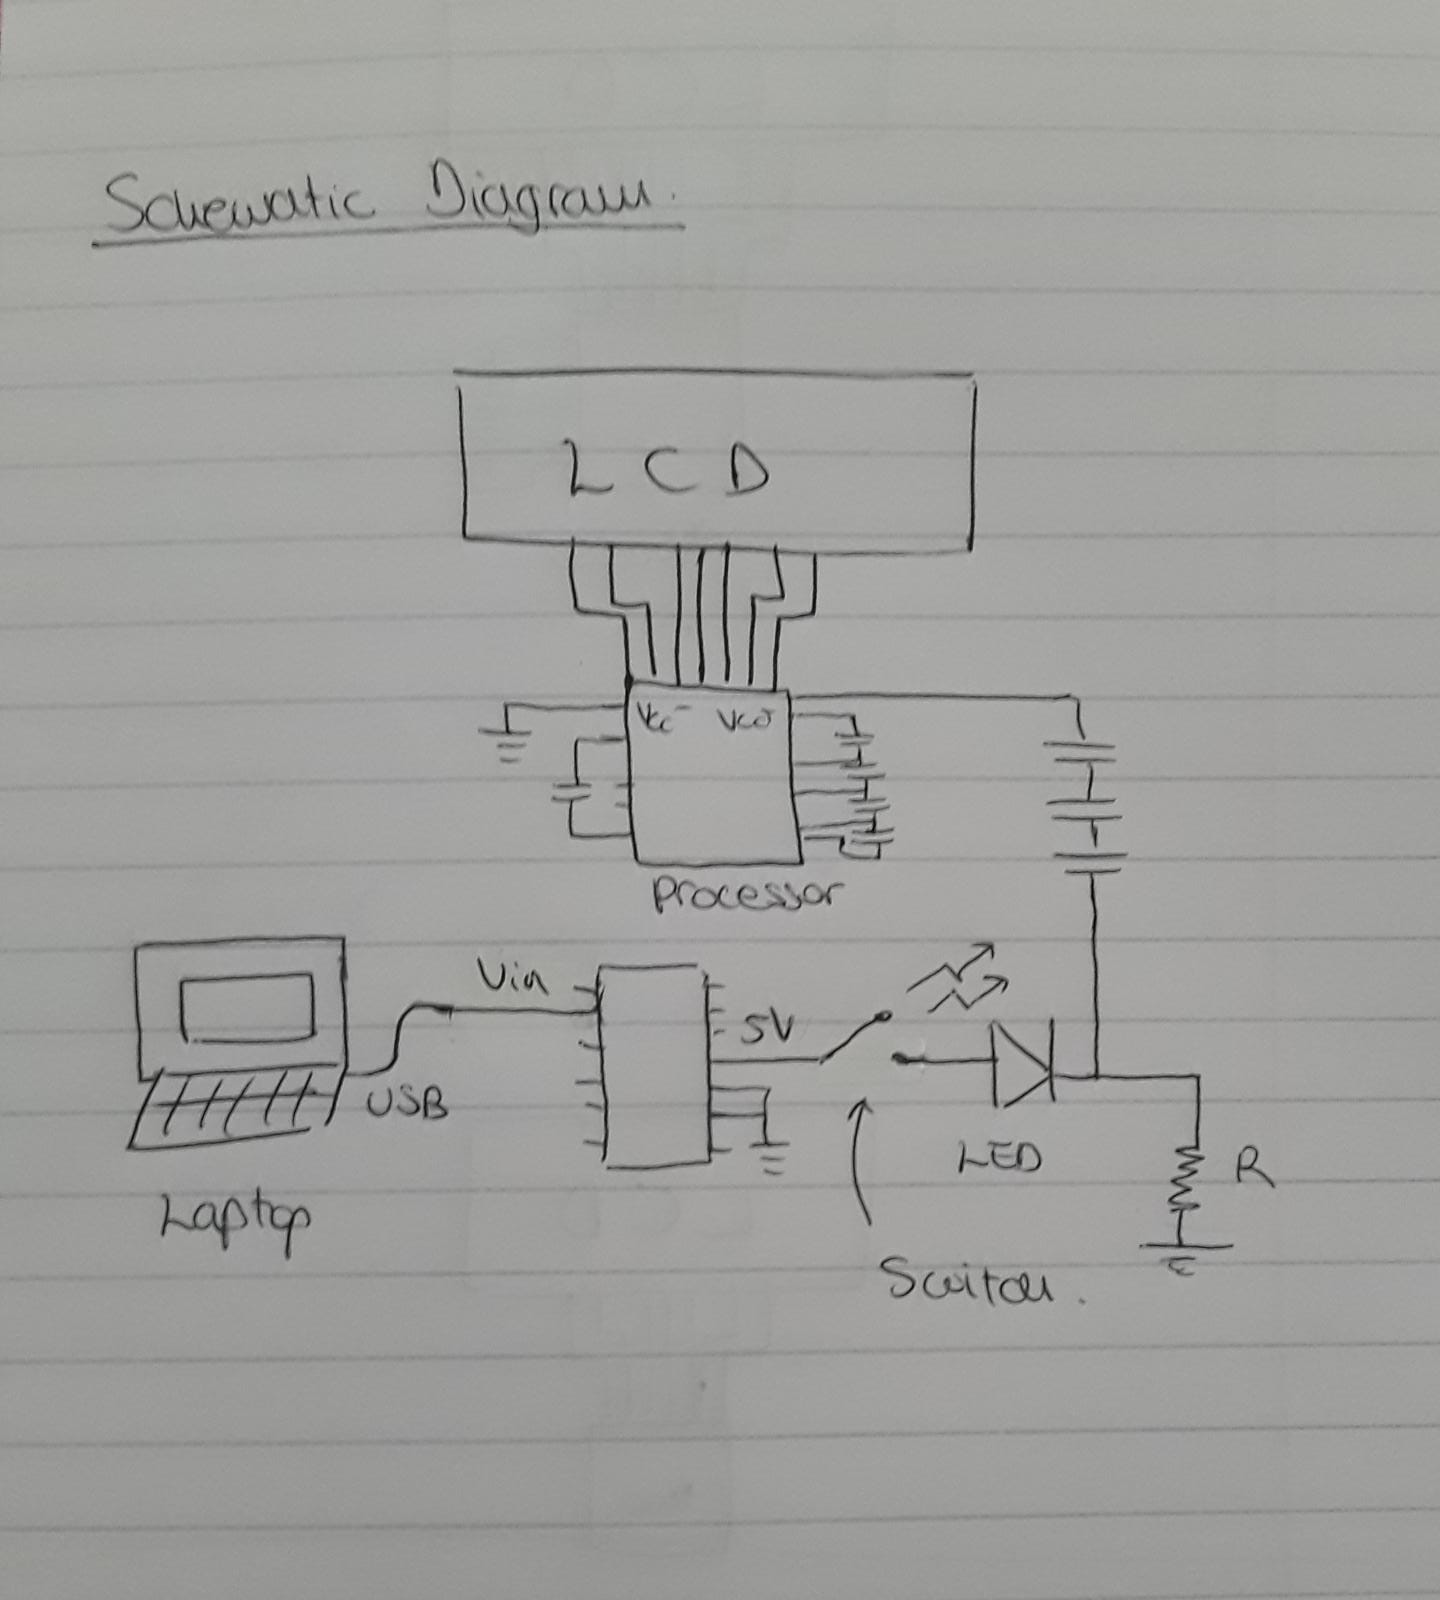 Schematic Diagram.
LCD
Vcc- Vcc+
Processor
Vin
5V
USB
LED
R
Laptop
Switch.